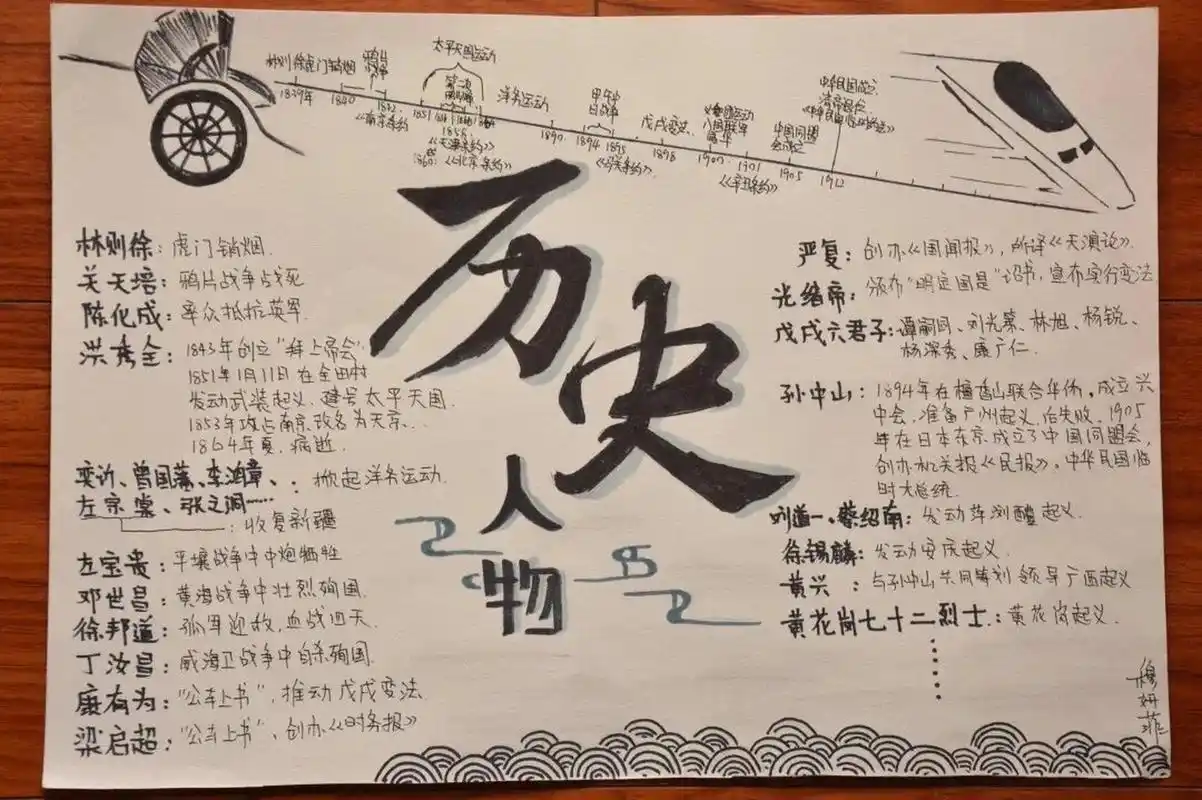 林则徐虎门销烟
鸦片
战争
太平天国运动
第二次
鸦片战争
洋务运动
甲午中
日战争
戊戌变法
义和团运动
八国联军
侵华
中国同盟
会成立
中华民国成立
清帝退位
1839年
1840
1842
《南京条约》
1851
1856
1860
1864
1858
《天津条约》
1860
《北京条约》
1890
1894
1895
《马关条约》
1898
1900
1901
《辛丑条约》
1905
1912
历史
人物
林则徐：虎门销烟.
关天培：鸦片战争战死
陈化成：率众抵抗英军.
洪秀全：1843年创立“拜上帝会”
1851年1月11日在金田村
发动武装起义、建号太平天国.
1853年攻占南京,改名为天京.
1864年夏,病逝.
奕訢、曾国藩、李鸿章、：掀起洋务运动.
左宗棠、张之洞……
：收复新疆
左宝贵：平壤战争中中炮牺牲
邓世昌：黄海战争中壮烈殉国.
徐邦道：孤军迎敌,血战四天.
丁汝昌：威海卫战争中自杀殉国.
康有为：“公车上书”,推动戊戌变法
梁启超：“公车上书”、创办《时务报》
严复：创办《国闻报》,所译《天演论》.
光绪帝：颁布“明定国是”诏书,宣布实行变法
戊戌六君子：谭嗣同、刘光第、林旭、杨锐、
杨深秀、康广仁.
孙中山：1894年在檀香山联合华侨,成立兴
中会.准备广州起义,后失败.1905
年在日本东京成立了中国同盟会,
创办机关报《民报》.中华民国临
时大总统.
刘道一、蔡绍南：发动萍浏醴起义.
徐锡麟：发动安庆起义.
黄兴：与孙中山共同策划领导广西起义
黄花岗七十二烈士：黄花岗起义.
穆妍菲